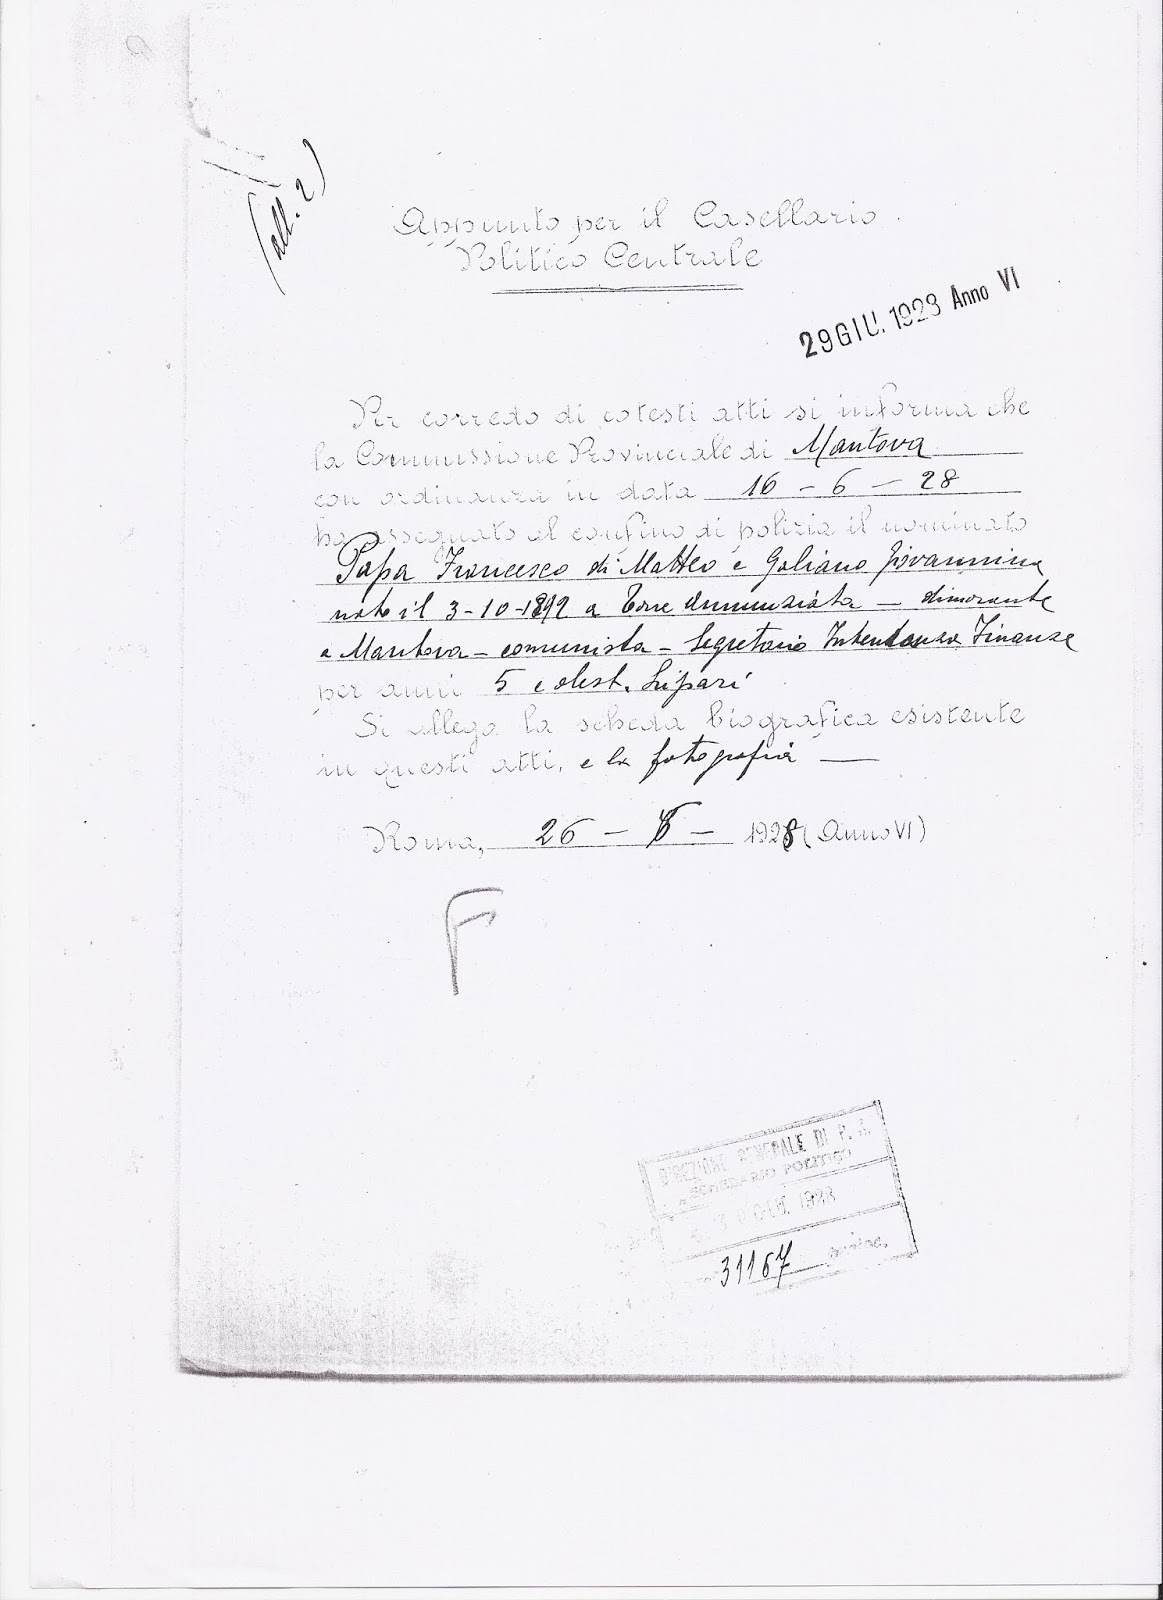 (all. 2)
Appunto per il Casellario
Politico Centrale
29 GIU. 1928 Anno VI
Per corredo di cotesti atti si informa che
la Commissione Provinciale di Mantova
con ordinanza in data 16 - 6 - 28
ha assegnato al confino di polizia il nominato
Papa Francesco di Matteo e Galiano Giovannina
nato il 3-10-1892 a Torre Annunziata - dimorante
a Mantova - comunista - Segretario Intendenza Finanze
per anni 5 e dest. Lipari
Si allega la scheda biografica esistente
in questi atti, e la fotografia —
Roma, 26 - 6 - 1928 (Anno VI)
F
DIREZIONE GENERALE DI P. S.
SCHEDARIO POLITICO
1928
31167